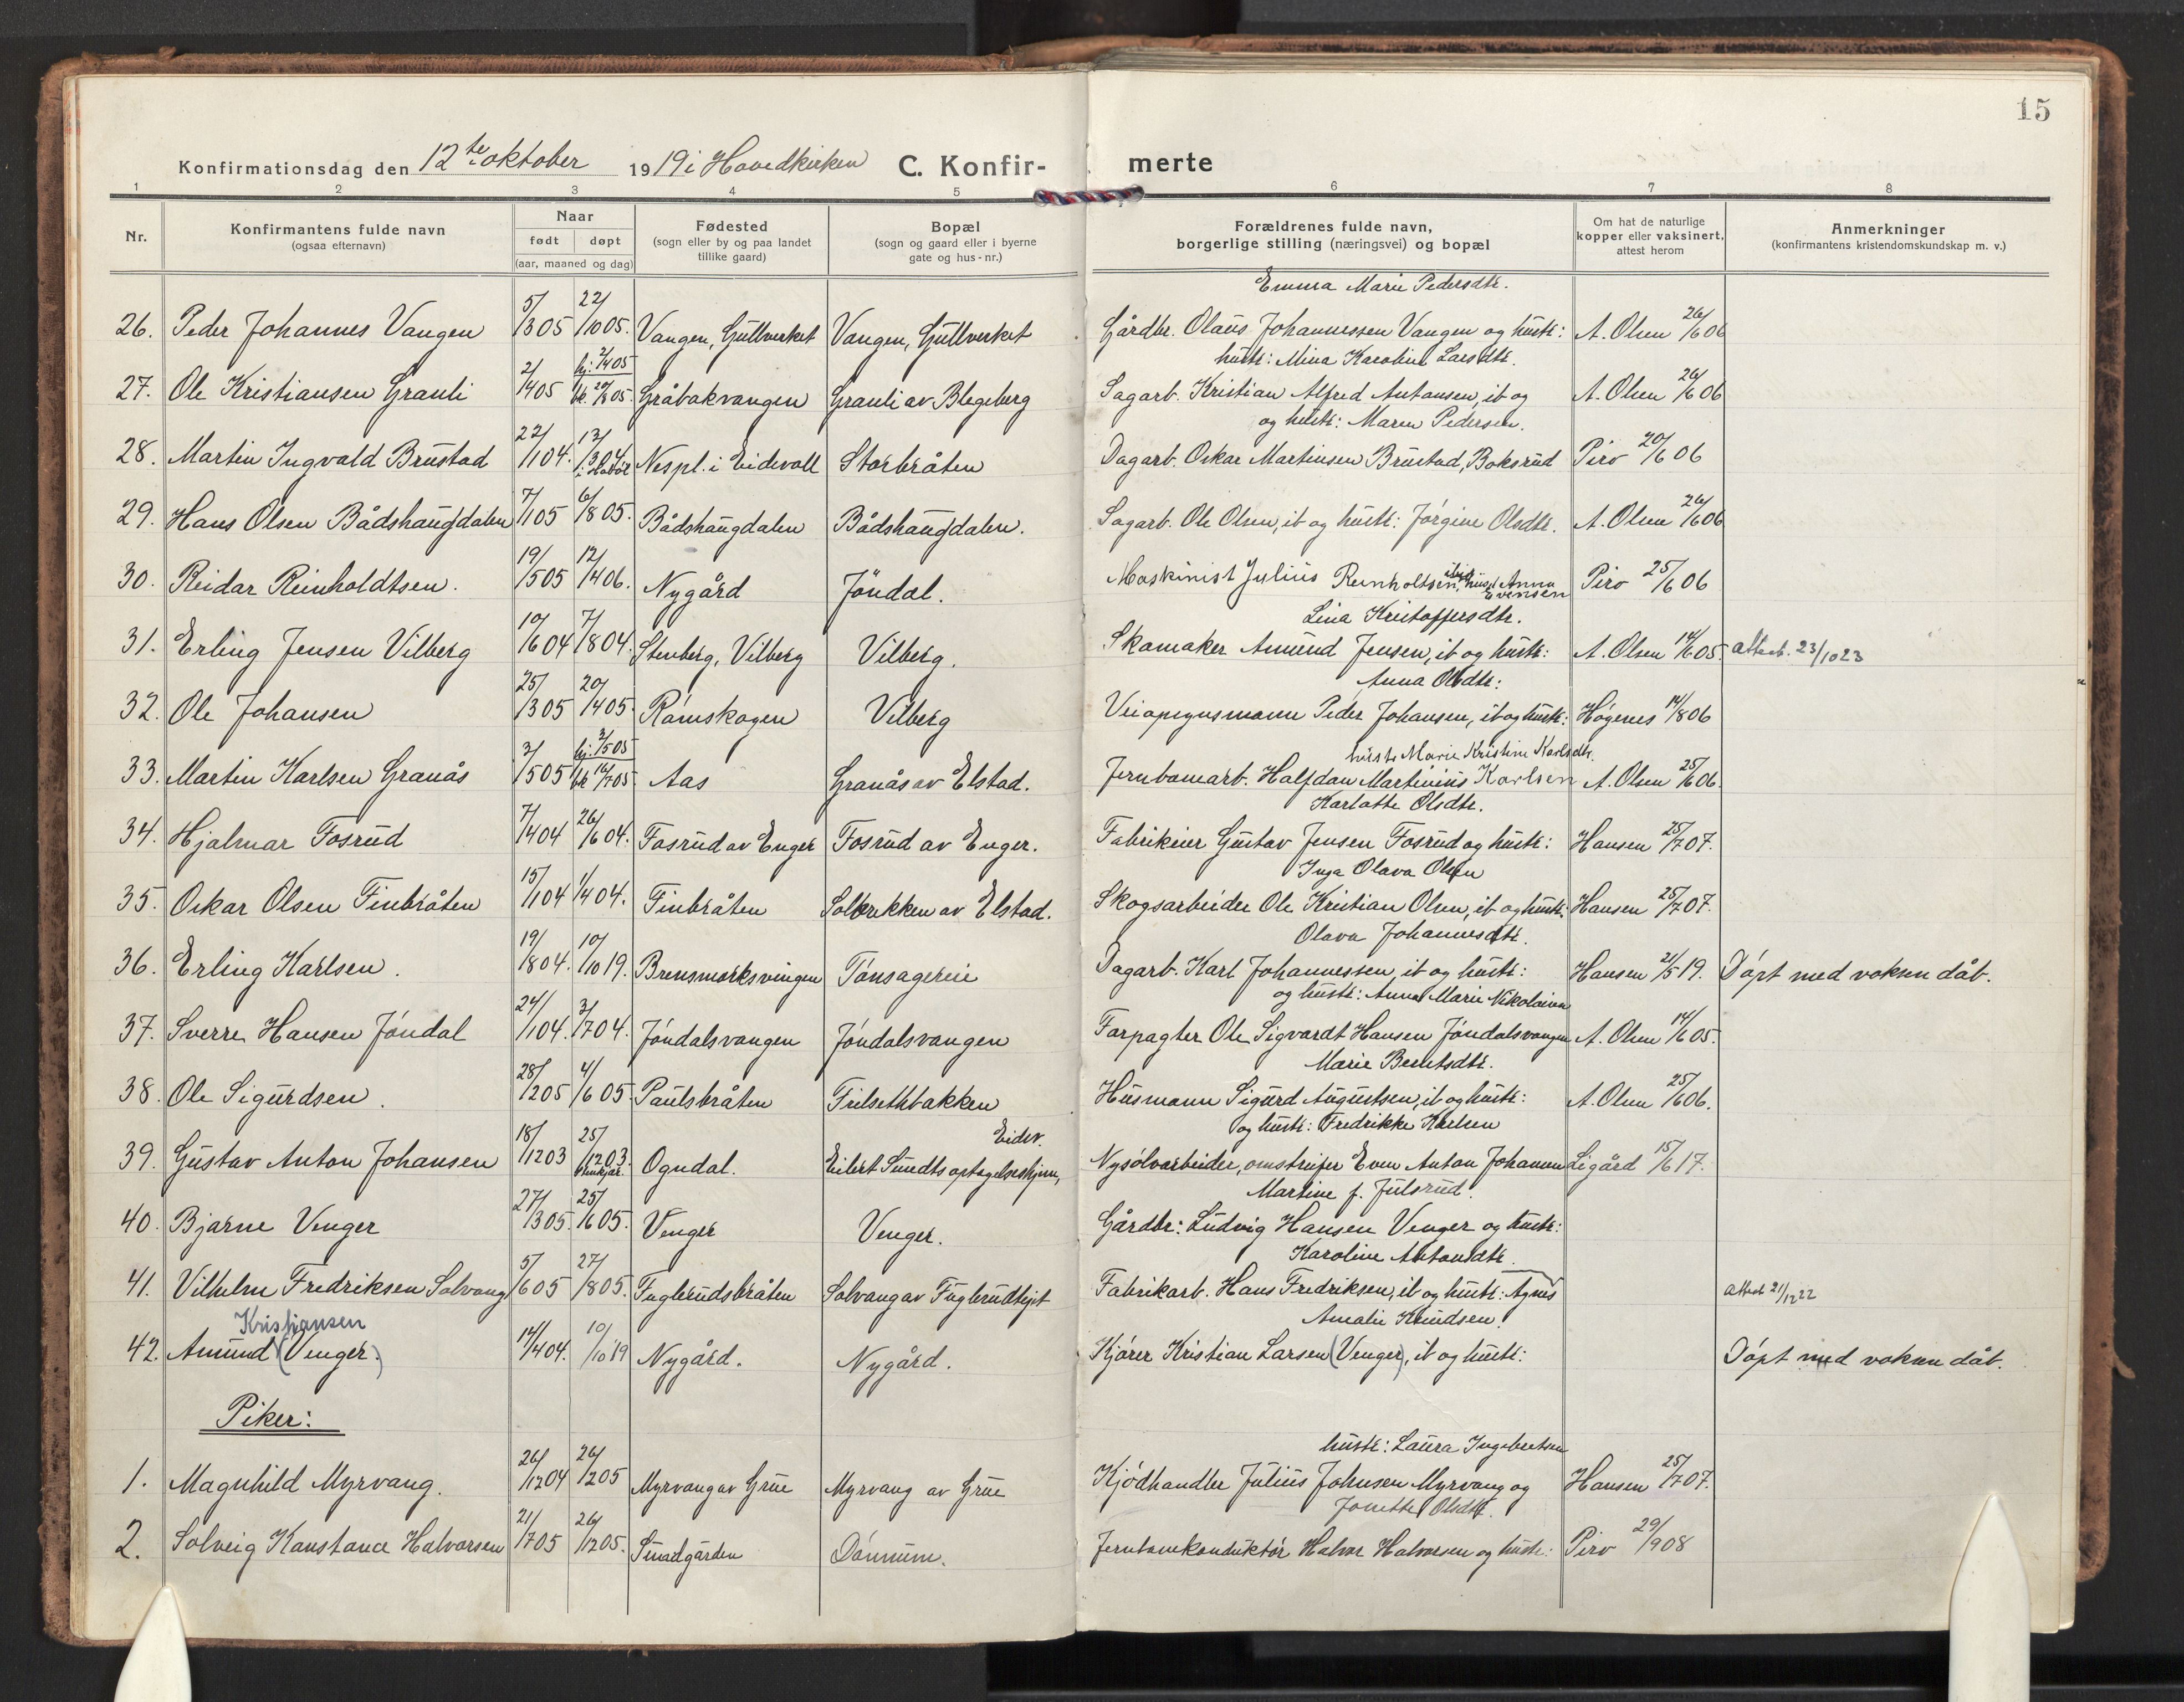 15
Konfirmationsdag den 12te oktober 1919 i Hovedkirken C. Konfirmerte
1 2 3 4 5 6 7 8
Nr. Konfirmantens fulde navn (ogsaa efternavn) Naar født døpt (aar, maaned og dag) Fødested (sogn eller by og paa landet tillike gaard) Bopæl (sogn og gaard eller i byerne gate og hus-nr.) Forældrenes fulde navn, borgerlige stilling (næringsvei) og bopæl Om hat de naturlige kopper eller vaksinert, attest herom Anmerkninger (konfirmantens kristendomskundskap m. v.)
Emma Marie Pedersdtr.
26. Peder Johannes Vangen 5/3 05 22/10 05. Vangen, Gullverket Vangen, Gullverket Gårdbr. Olaus Johannessen Vangen og hustr: A. Olsen 26/6 06
hj: 2/4 05 hustr: Mina Karoline Larsdtr.
27. Ole Kristiansen Grauli 2/4 05 bk. 20/8 05. Gråbakvangen Grauli av Blegeberg Sagarb. Kristian Alfred Antonsen, ib og A. Olsen 26/6 06
og hustr: Maren Pedersen.
28. Martin Ingvald Brustad 22/1 04. 13/3 04 Nespl. i Eidsvoll Storbråten Dagarb. Oskar Martinsen Brustad, Boksrud Piro 20/6 06
29. Hans Olsen Bådshaugdalen 7/1 05 6/8 05. Bådshaugdalen Bådshaugdalen. Sagarb. Ole Olsen, ib og hustr: Jørgine Olsdtr. A. Olsen 26/6 06
30. Reidar Reinholdtsen. 19/5 05 12/4 06. Nygård Jøndal. Maskinist Julius Reinholtsen, ibid hust Anna Evensen Piro 25/6 06
Lina Kristoffersdtr.
31. Erling Jensen Vilberg 10/6 04 7/8 04. Stenberg, Vilberg Vilberg. Skomaker Amund Jensen, ib og hustr: A. Olsen 14/6 05. attest. 23/10 23
Anna Olsdtr:
32. Ole Johansen 25/3 05 20/4 05. Rømskogen Vilberg Veiopsynsmann Peder Johansen, ib og hustr: Högenes 14/8 06
hj: 3/5 05 hustr Marie Kristine Karlsdtr.
33. Martin Karlsen Granås 3/5 05 bk 16/7 05. Aas Granås av Elstad. Jernbanearb. Halfdan Martinius Karlsen A. Olsen 25/6 06.
Karlotte Olsdtr.
34. Hjalmar Fosrud 7/4 04 26/6 04. Fosrud av Enger Fosrud av Enger. Fabrikeier Gustav Jensen Fosrud og hustr: Hansen 25/7 07.
Inga Olava Olsen
35. Oskar Olsen Finbråten 15/1 04 1/4 04. Finbråten Solbrekken av Elstad. Skogsarbeider Ole Kristian Olsen, ib og hustr: Hansen 25/7 07.
Olava Johannesdtr.
36. Erling Karlsen. 19/8 04. 10/10 19. Brensmorksvingen Tønsagereie Dagarb. Karl Johannessen, ib og hustr: Hansen 21/5 19. Døpt med voksen dåb.
og hustr: Anna Marie Nikolaisen
37. Sverre Hansen Jøndal 24/1 04. 3/7 04. Jøndalsvangen Jøndalsvangen Forpagter Ole Sigvardt Hansen Jøndalsvangen A. Olsen 14/6 05.
Marie Berntsdtr.
38. Ole Sigurdsen. 28/2 05 4/6 05. Paulsbråten Frilsethbakken Husmann Sigurd Augustsen, ib og hustr: A. Olsen 25/6 06.
og hustr: Fredrikke Karlsen
39. Gustav Anton Johansen 18/12 03 25/12 03. Ogndal. Eilert Sundts optagelseshjem, Eidsv. Nysølvarbeider, omstreifer Even Anton Johansen Ligård 15/6 17.
Martine f. Julsrud.
40. Bjarne Venger 27/3 05. 25/6 05. Venger Venger. Gårdbr: Ludvig Hansen Venger og hustr:
Karoline Antonsdtr.
41. Vilhelm Fredriksen Solvang 5/6 05 27/8 05. Fuglerudsbråten Solvang av Fuglerudhgit Fabrikarb. Hans Fredriksen, ib og hustr: Agnes attest 21/12 22
Kristiansen Amalie Knudsen.
42. Amund (Venger.) 14/4 04. 10/10 19 Nygård. Nygård. Kjører Kristian Larsen (Venger), ib og hustr: Døpt med voksen dåb.
Piker:
hustr: Laura Ingebretsen
1. Magnhild Myrvang. 26/12 04 26/2 05 Myrvang av Grue Myrvang av Grue Kjødhandler Julius Johnsen Myrvang og Hansen 25/7 07.
Jonette Olsdtr.
2. Solveig Konstance Halvorsen 21/7 05 26/12 05. Smedgården Dønnum. Jernbanekonduktør Halvor Halvorsen og hustr: Piro 29/9 08